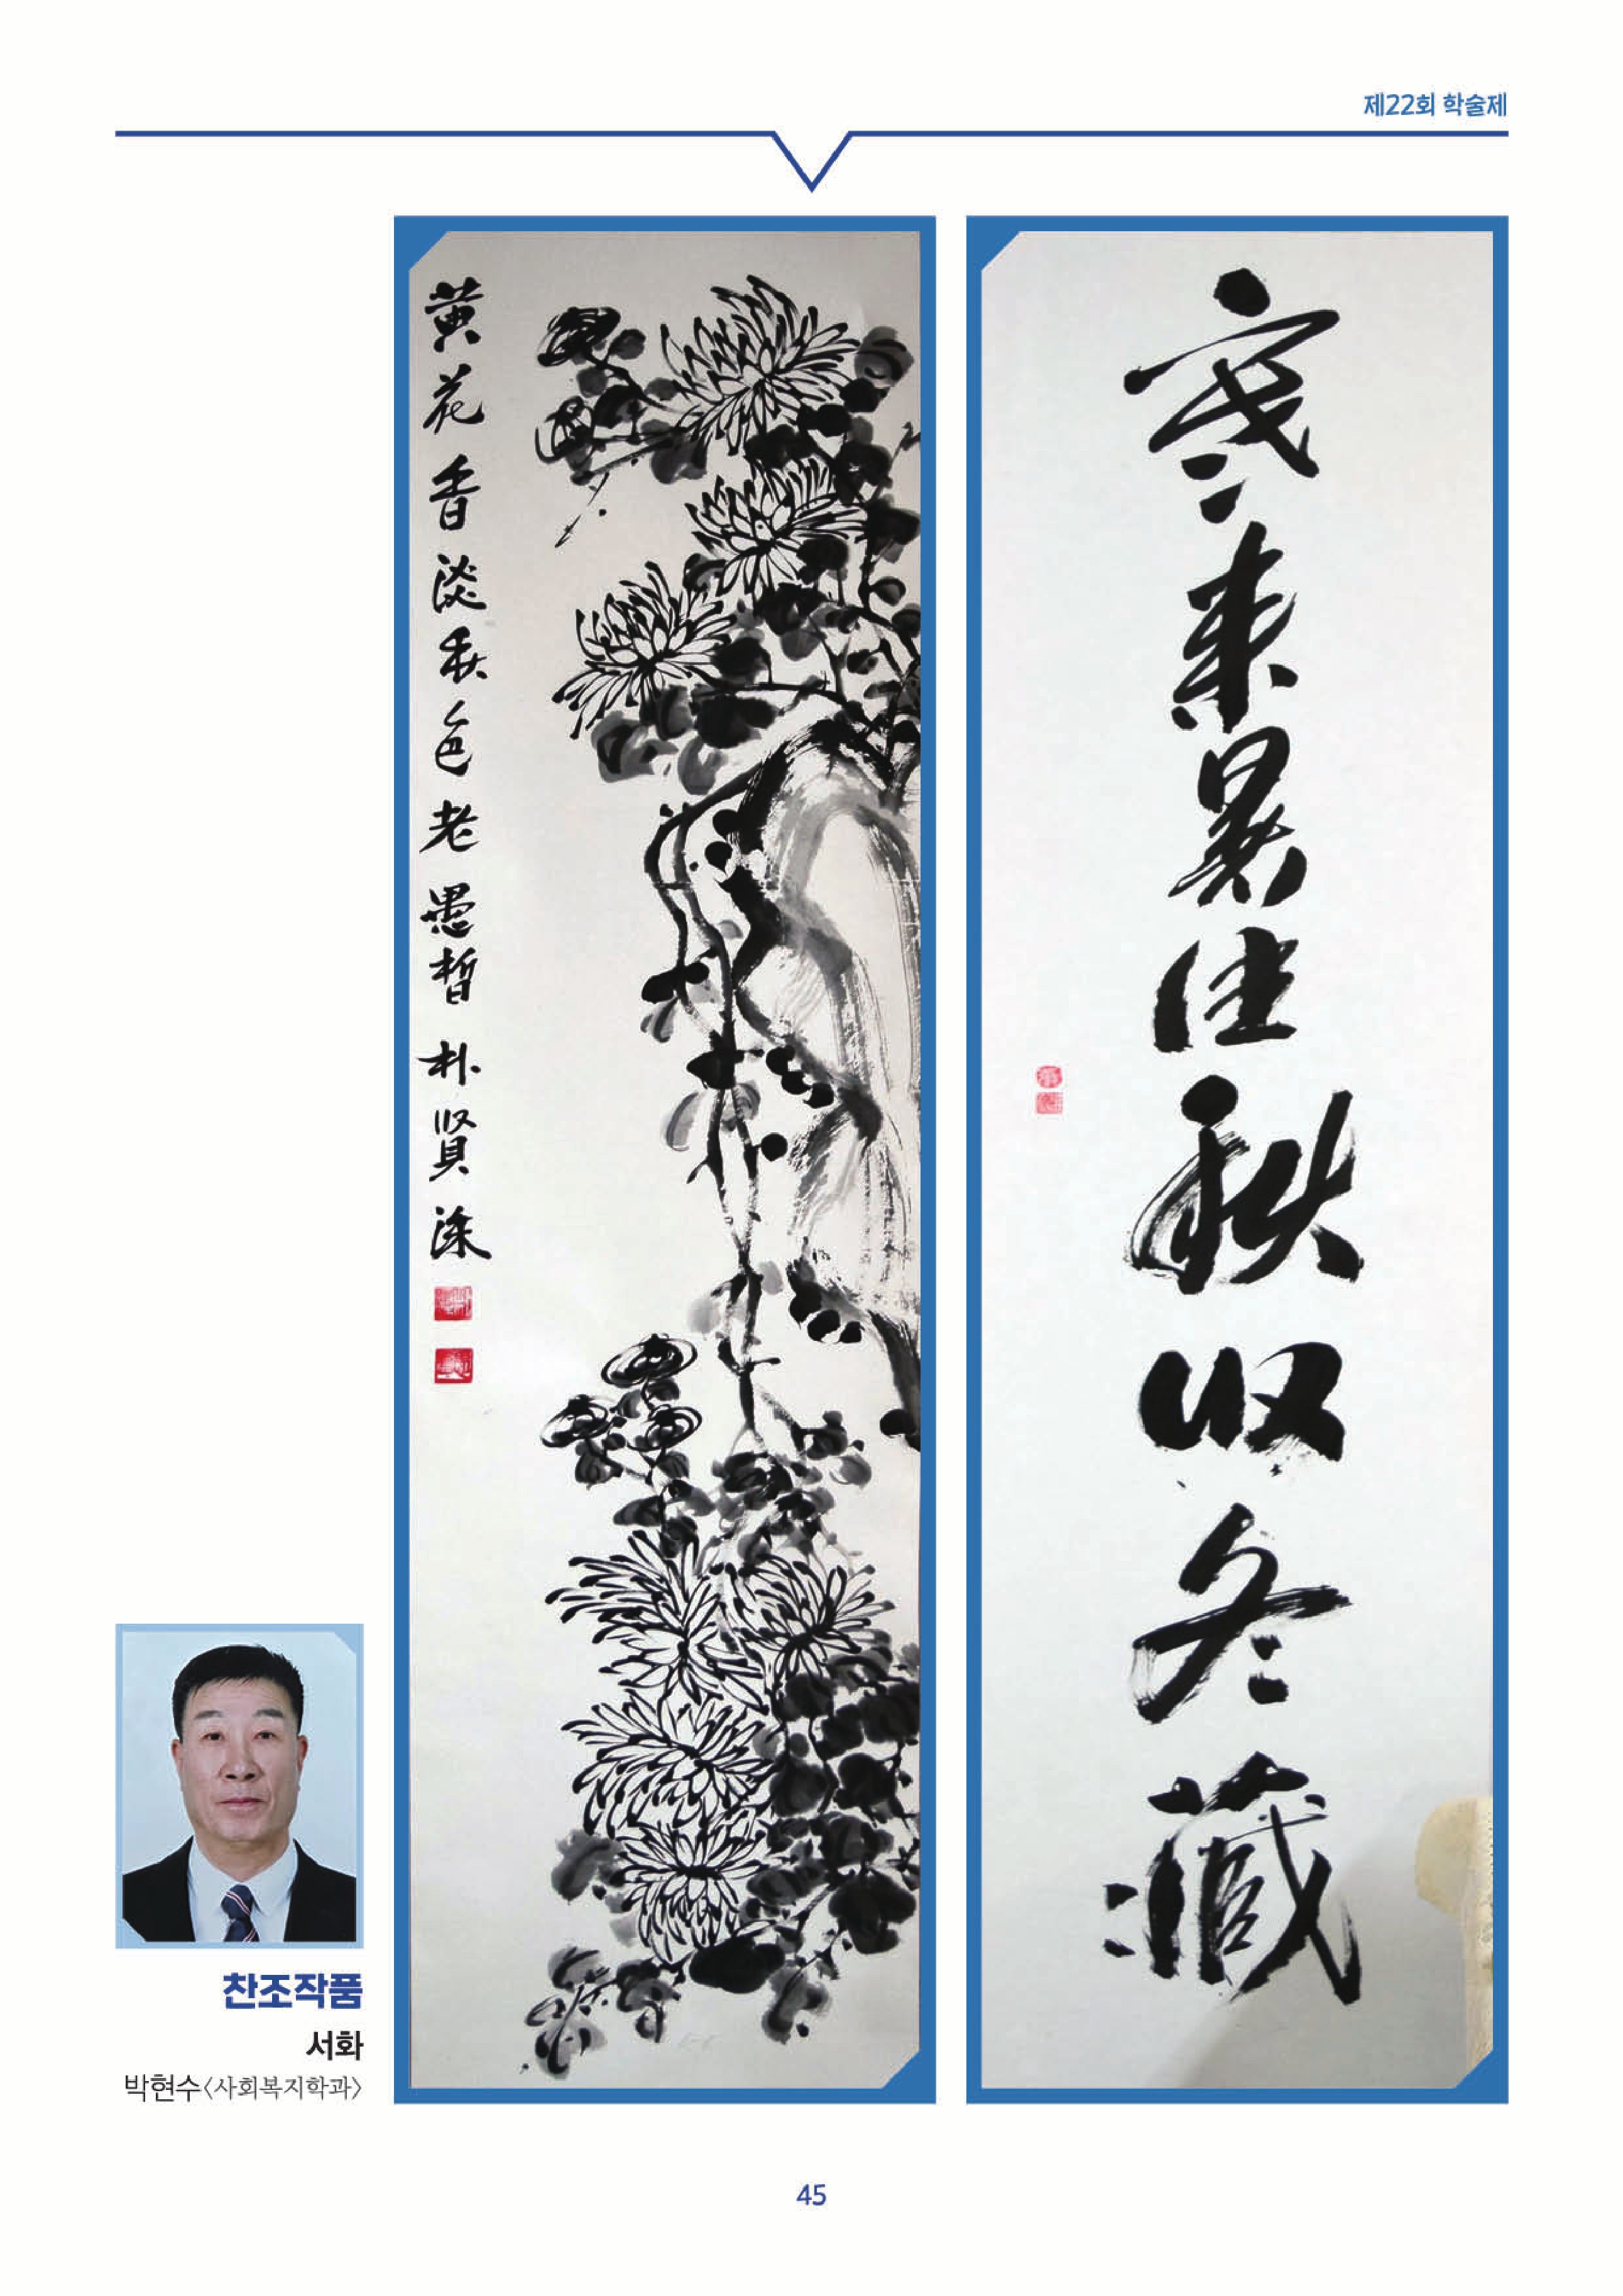 제22회 학술제
黄花香淡秋色老 愚晳 朴賢洙
寒来暑往秋收冬藏
찬조작품
서화
박현수<사회복지학과>
45